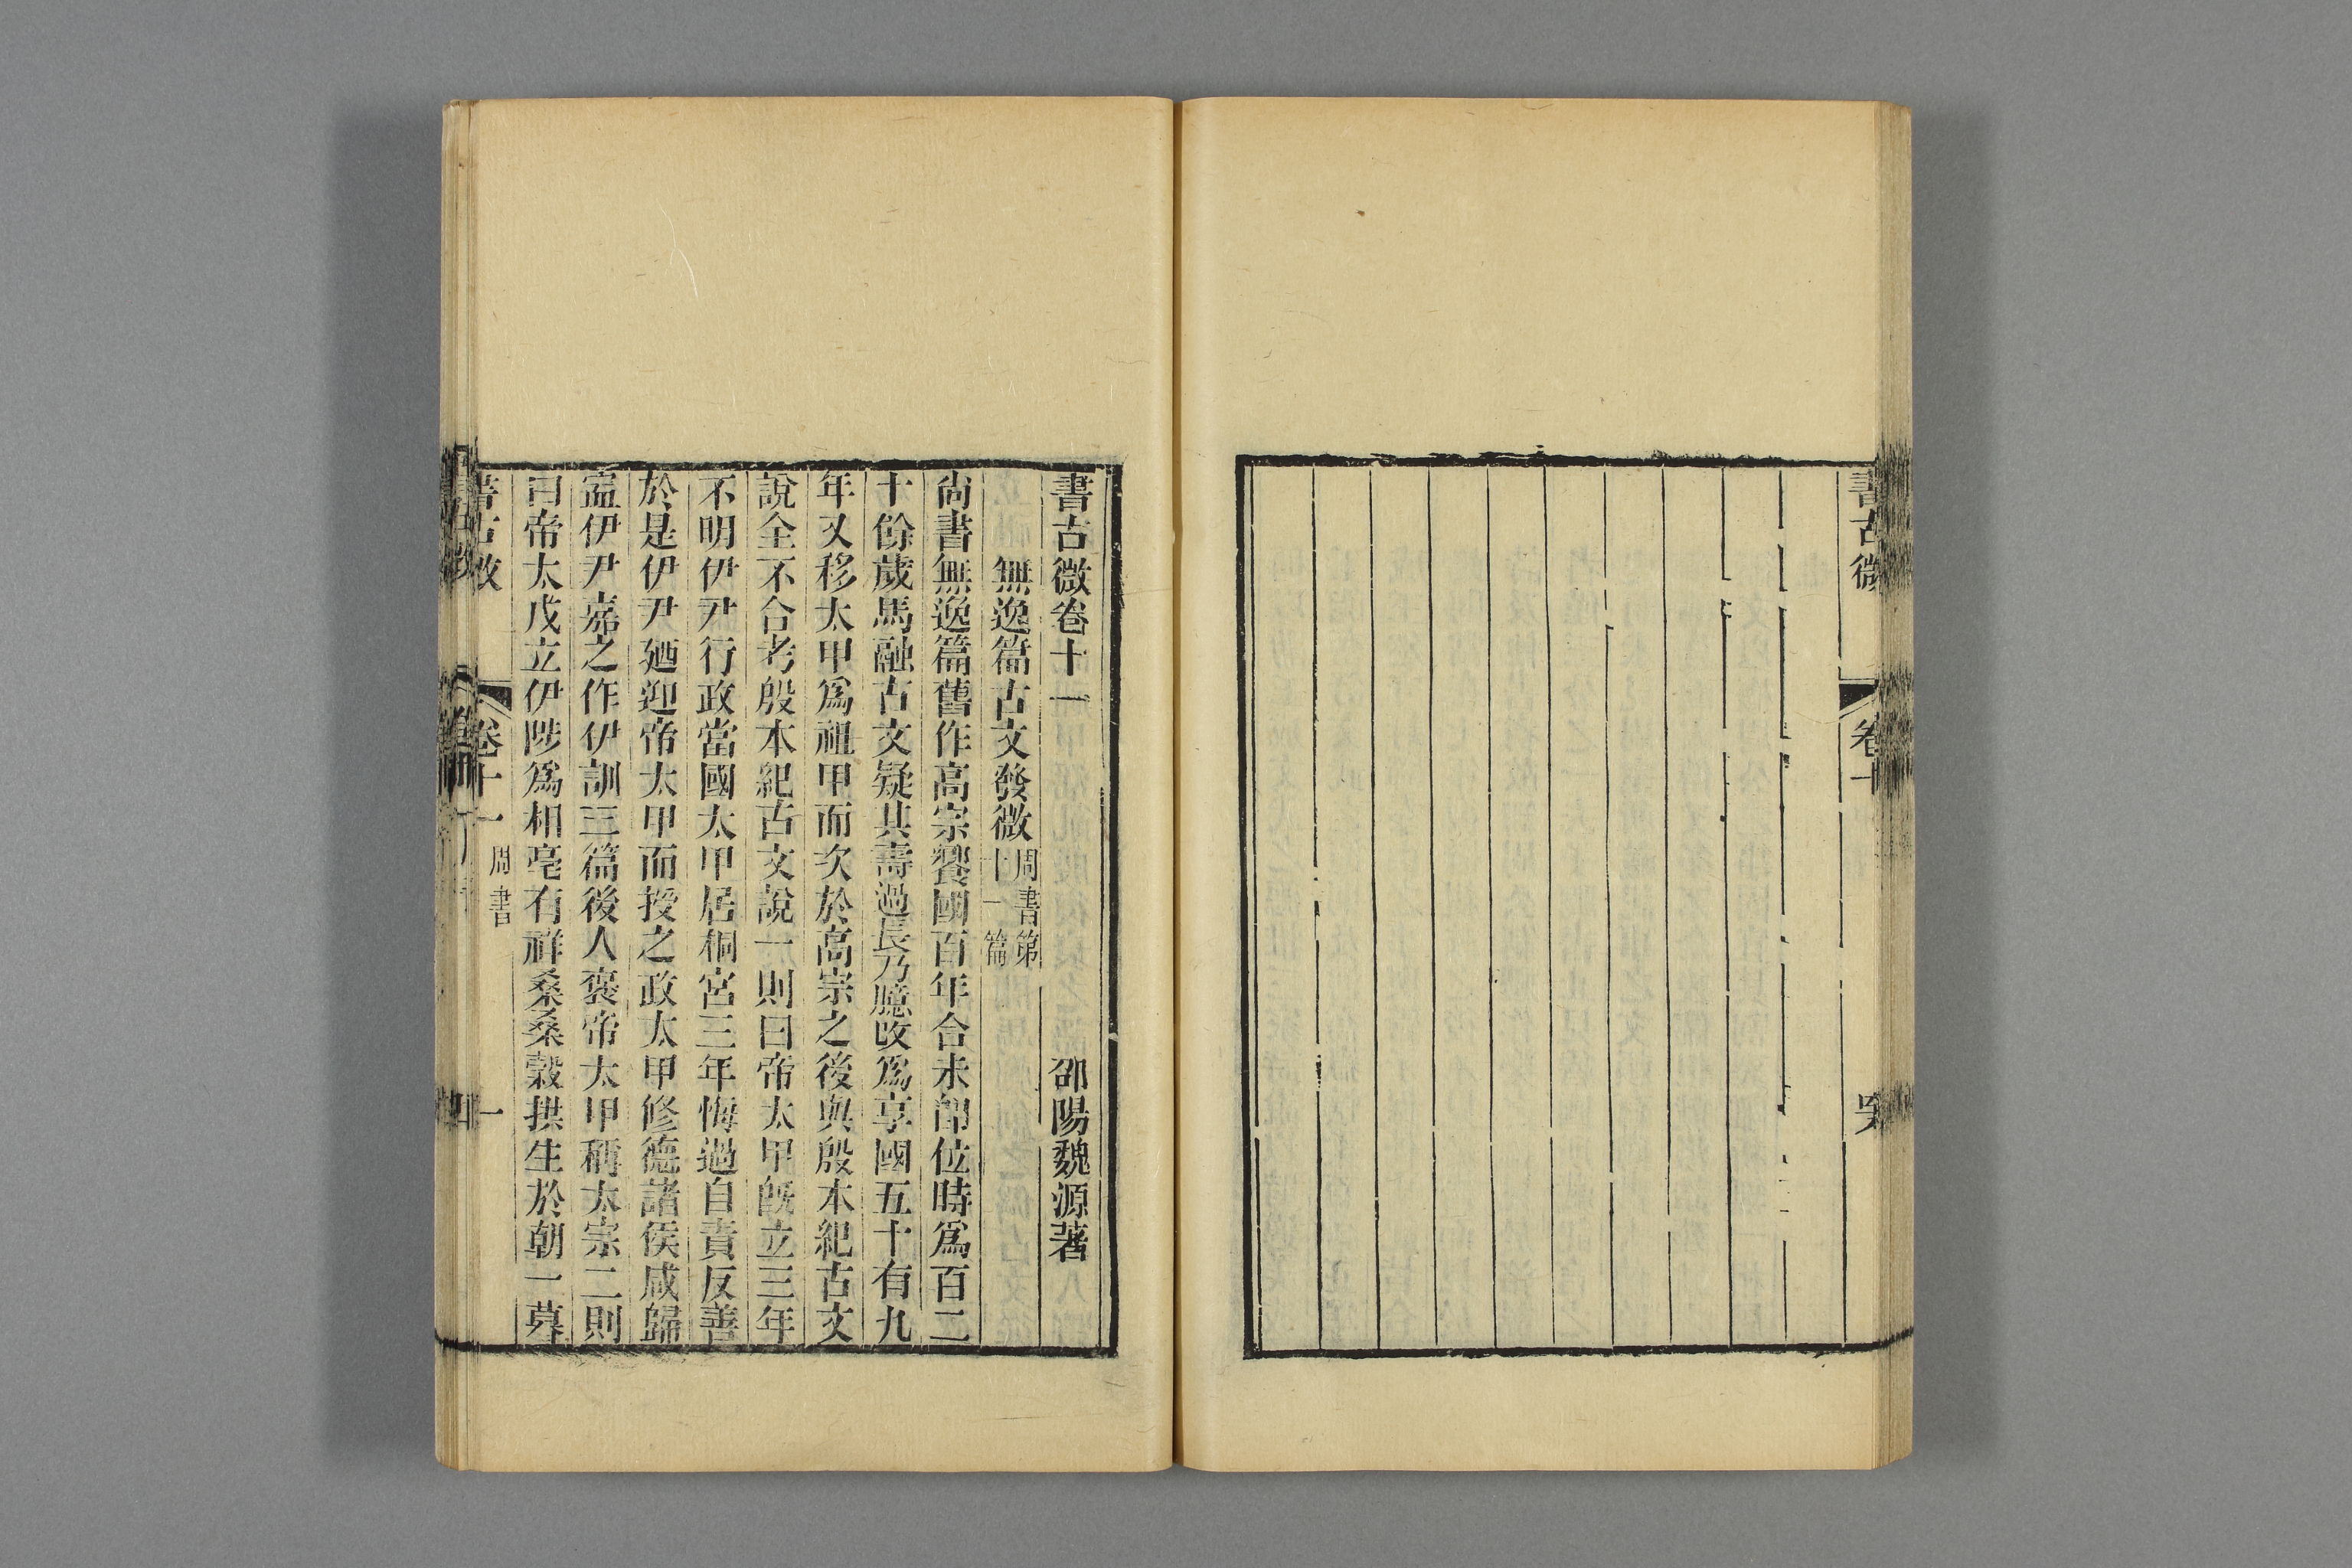 書古微
卷十
書古微卷十一
邵陽魏源著
無逸篇古文發微
周書第
十一篇
尙書無逸篇舊作高宗饗國百年合未卽位時爲百二
十餘歲馬融古文疑其壽過長乃臆改爲享國五十有九
年又移太甲爲祖甲而次於高宗之後與殷本紀古文
說全不合考殷本紀古文說一則曰帝太甲旣立三年
不明伊尹行政當國太甲居桐宮三年悔過自責反善
於是伊尹廼迎帝太甲而授之政太甲修德諸侯咸歸
寍伊尹嘉之作伊訓三篇後人褒帝太甲稱太宗二則
曰帝太戊立伊陟爲相亳有祥桑桑榖拱生於朝一暮
書古微
卷十一
周書
一